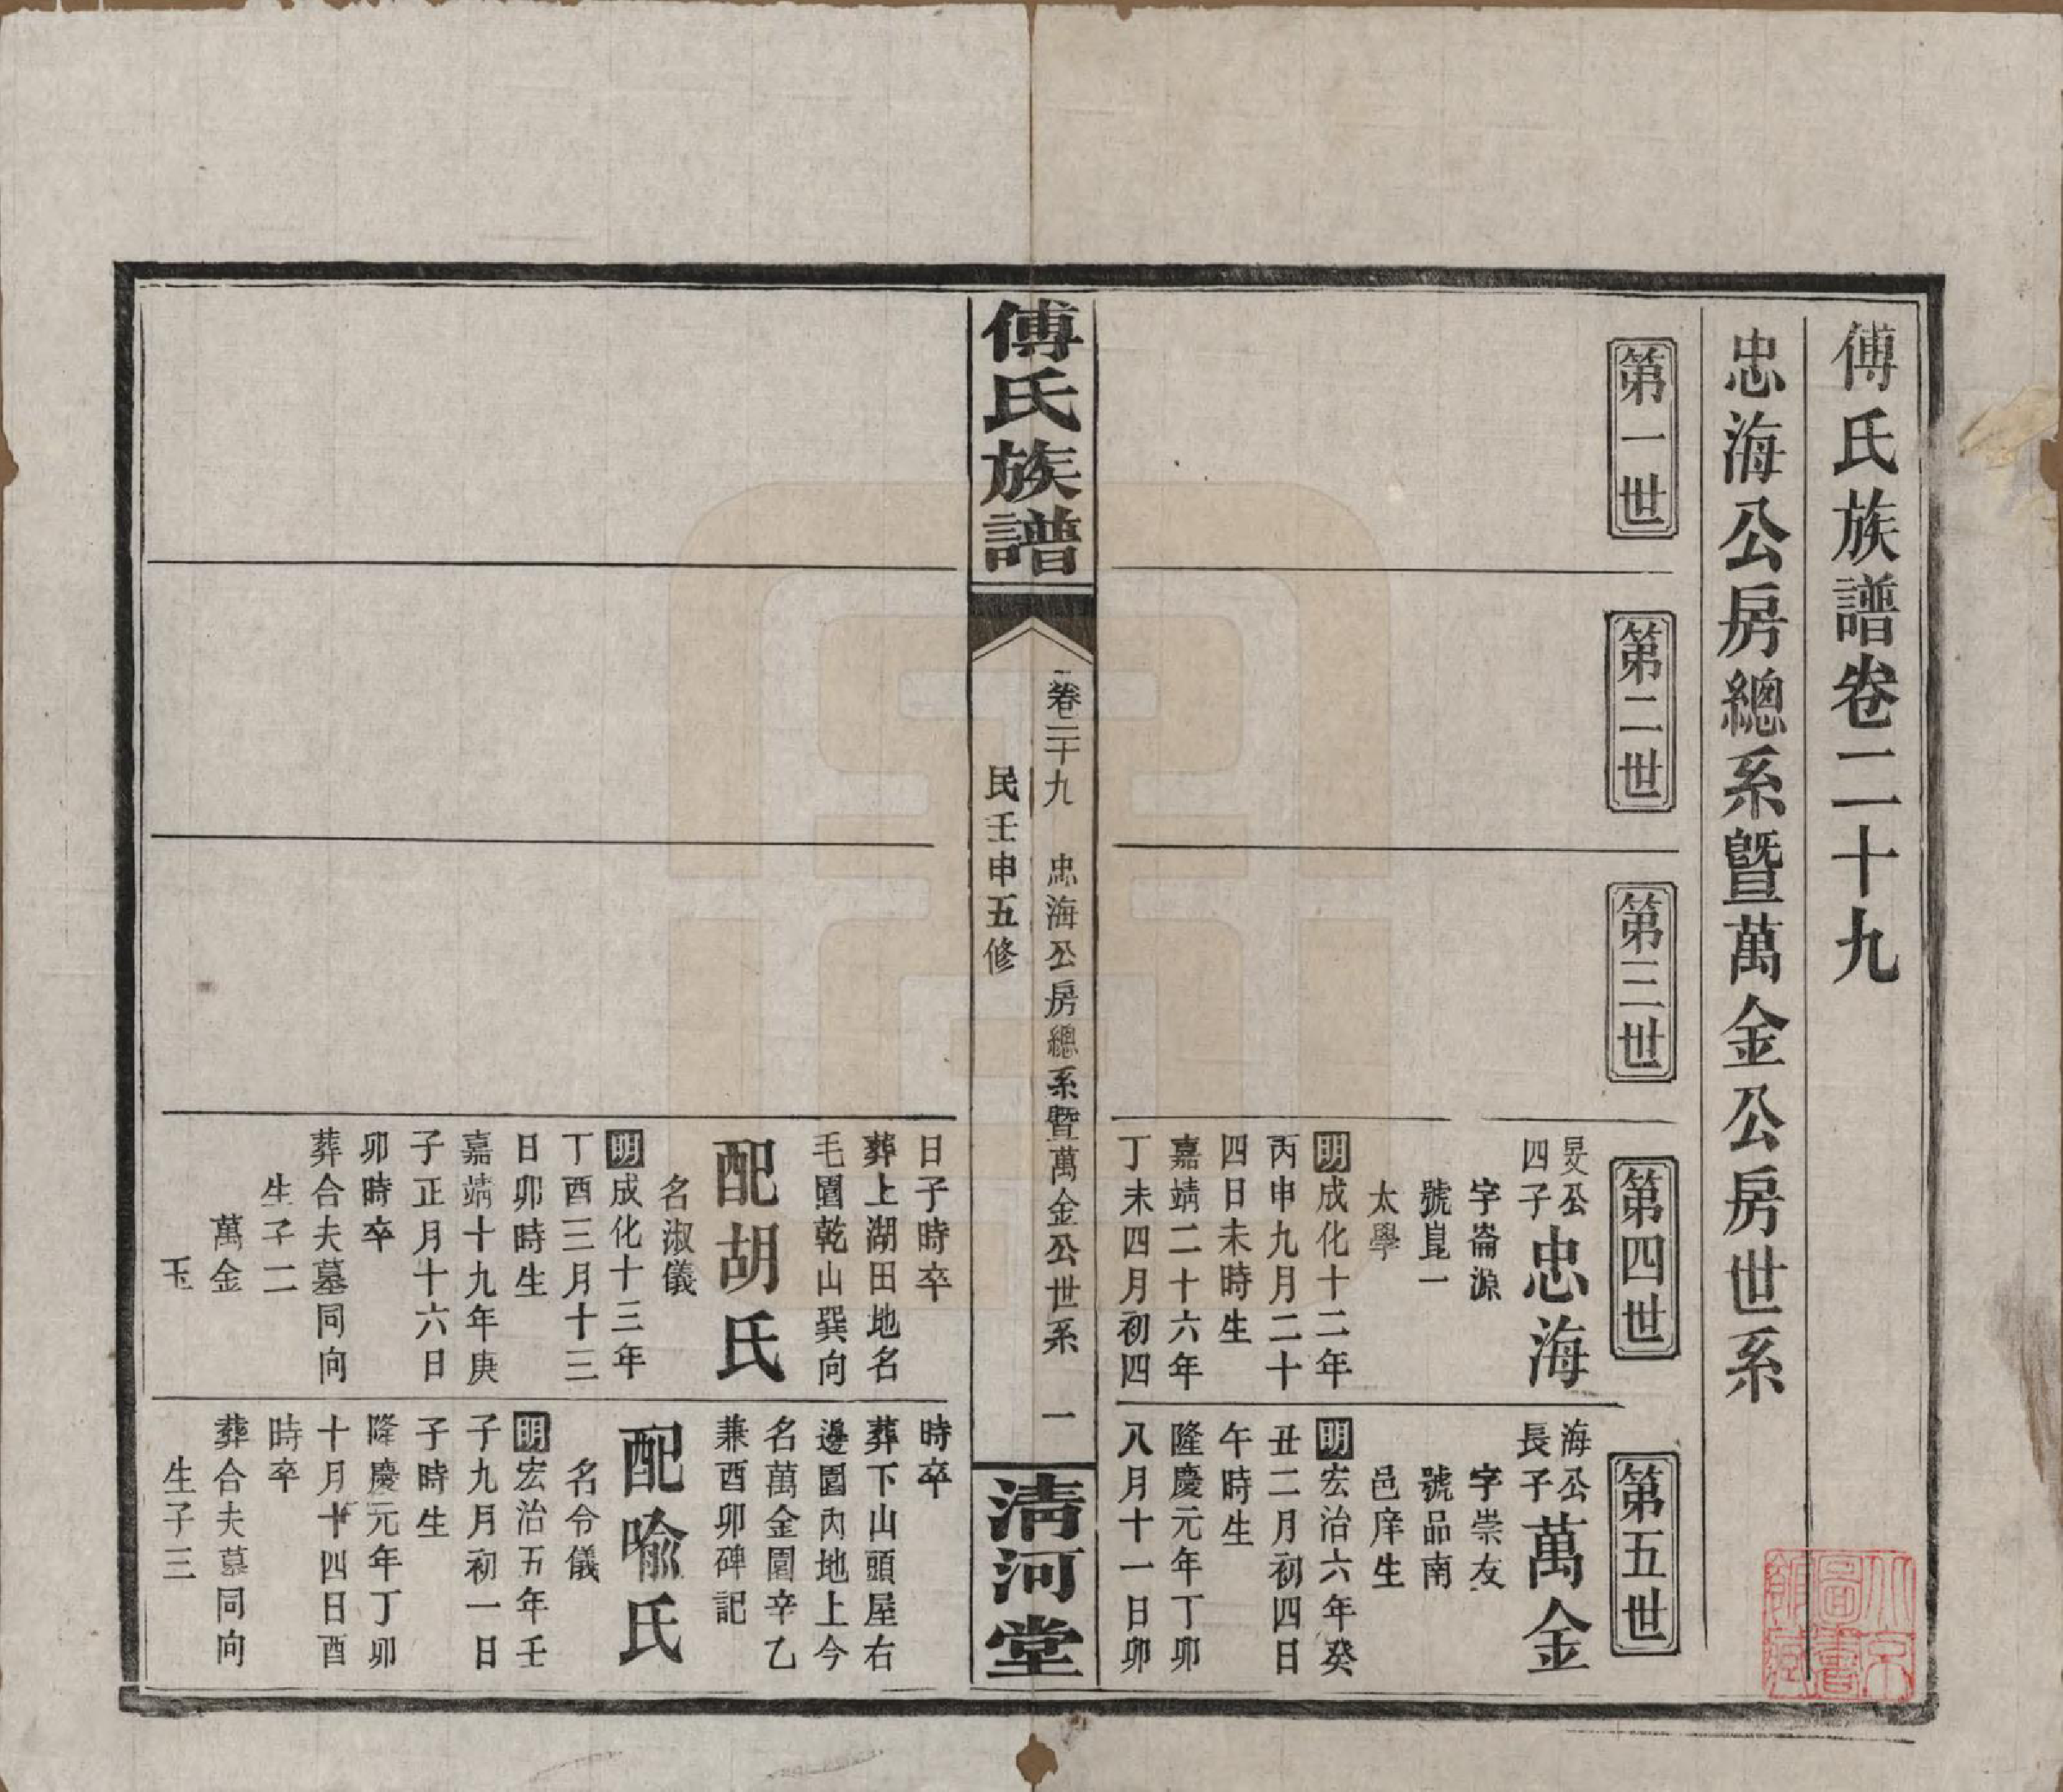 傅氏族譜卷二十九
忠海公房總系暨萬金公房世系
第一世
第二世
第三世
第四世
旻公
四子
忠海
字崙源
號崑一
太學
明成化十二年
丙申九月二十
四日未時生
嘉靖二十六年
丁未四月初四
第五世
海公
長子
萬金
字崇友
號品南
邑庠生
明宏治六年癸
丑二月初四日
午時生
隆慶元年丁卯
八月十一日卯
傅氏族譜
卷二十九
忠海公房總系暨萬金公世系
一
民壬申五修
清河堂
日子時卒
葬上湖田地名
毛園乾山巽向
配胡氏
名淑儀
明成化十三年
丁酉三月十三
日卯時生
嘉靖十九年庚
子正月十六日
卯時卒
葬合夫墓同向
生子二
萬金
玉
時卒
葬下山頭屋右
邊園內地上今
名萬金園辛乙
兼酉卯碑記
配喩氏
名令儀
明宏治五年壬
子九月初一日
子時生
隆慶元年丁卯
十月十四日酉
時卒
葬合夫墓同向
生子三
北京
圖書
館藏